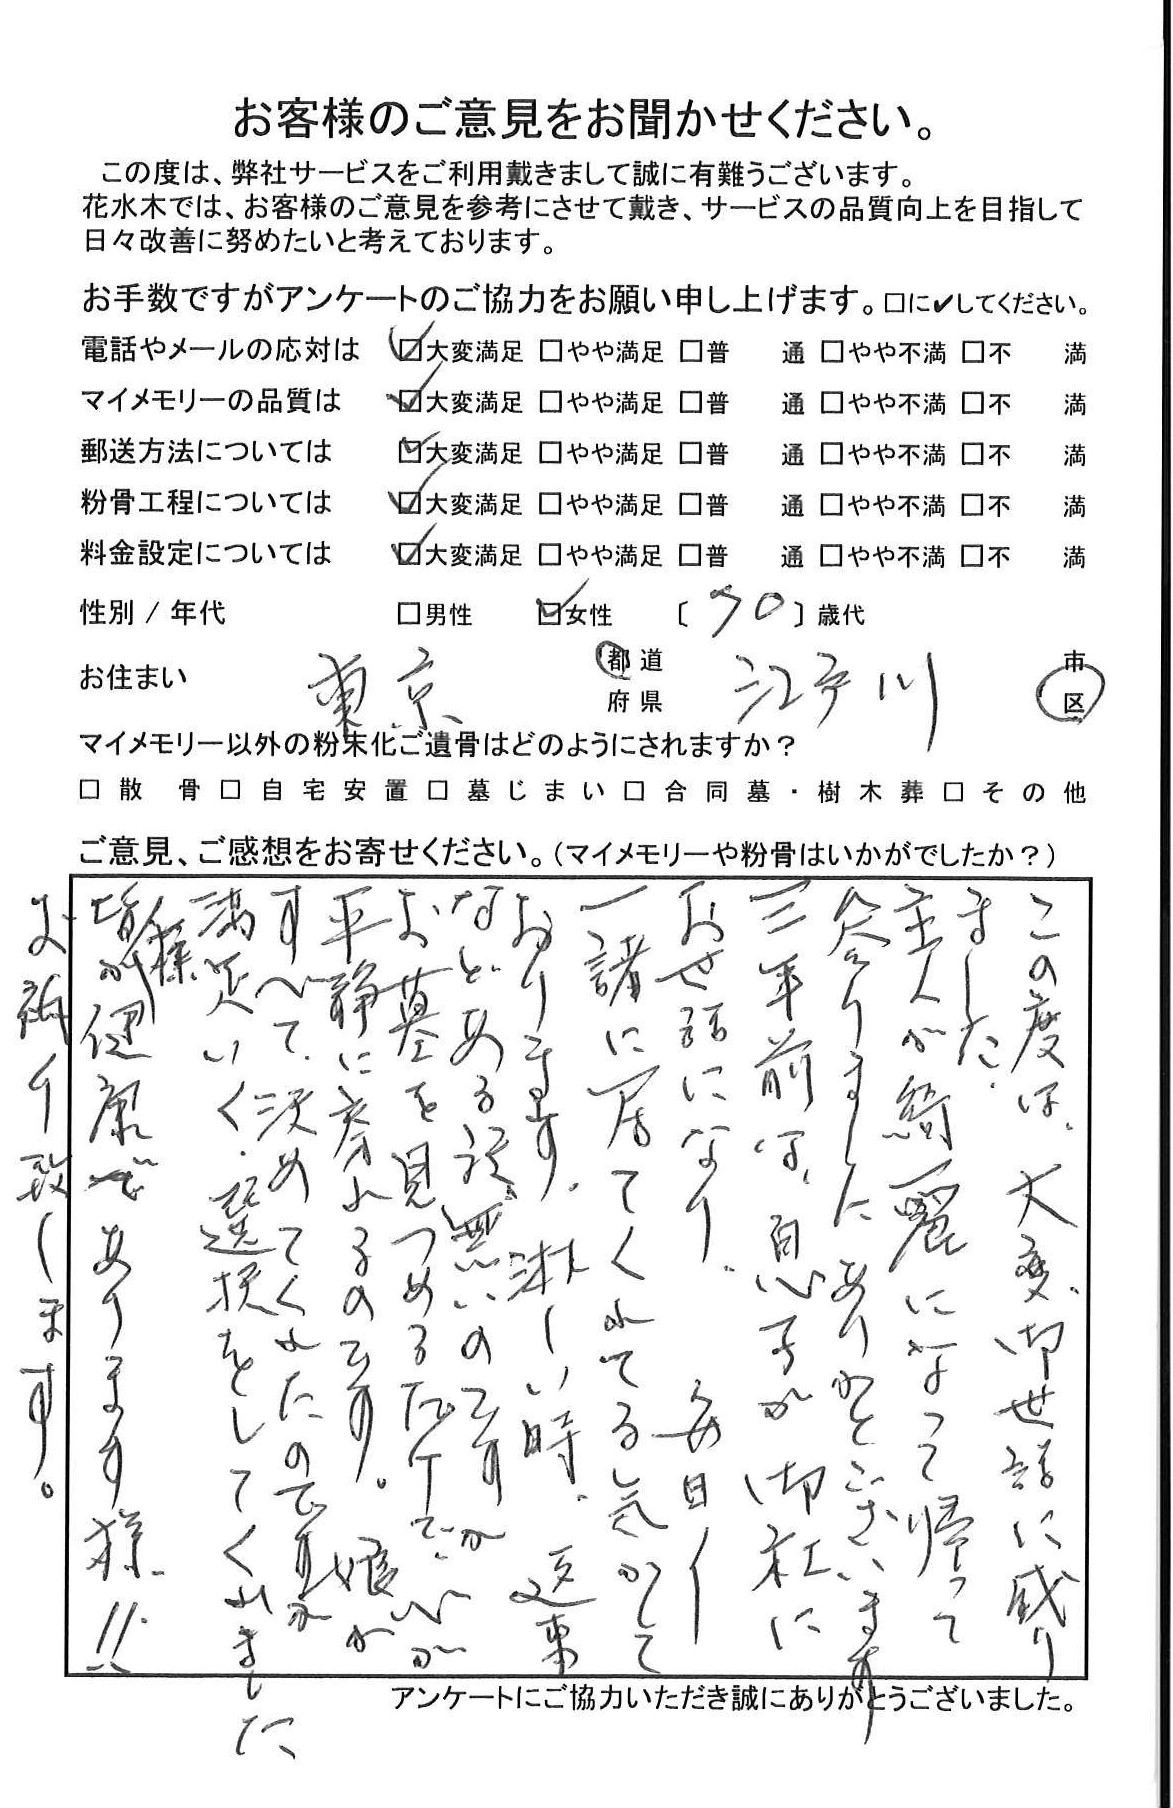 お客様のご意見をお聞かせください。
この度は、弊社サービスをご利用戴きまして誠に有難うございます。
花水木では、お客様のご意見を参考にさせて戴き、サービスの品質向上を目指して
日々改善に努めたいと考えております。
お手数ですがアンケートのご協力をお願い申し上げます。□に✔してください。
電話やメールの応対は ☑大変満足 □やや満足 □普 通 □やや不満 □不 満
マイメモリーの品質は ☑大変満足 □やや満足 □普 通 □やや不満 □不 満
郵送方法については ☑大変満足 □やや満足 □普 通 □やや不満 □不 満
粉骨工程については ☑大変満足 □やや満足 □普 通 □やや不満 □不 満
料金設定については ☑大変満足 □やや満足 □普 通 □やや不満 □不 満
性別 / 年代 □男性 ☑女性 〔 70 〕歳代
お住まい 東京 都道府県 江戸川 市区
マイメモリー以外の粉末化ご遺骨はどのようにされますか？
□散 骨□自宅安置□墓じまい□合同墓・樹木葬□その他
ご意見、ご感想をお寄せください。（マイメモリーや粉骨はいかがでしたか？）
この度は、大変、御世話に成り
ました。
主人が綺麗になって帰って
参りました ありがとございます
三年前は、息子が御社に
お世話になり、毎日
一諸に居てくれてる気がして
おります。淋しい時、
などある 無いのですが
お墓を見つめるだけで、心が
平静に のです。娘が
すべて、決めてくれたのですが
満足いく、選択をしてくれました
皆様が健康であります様、!!
お祈り致します。
アンケートにご協力いただき誠にありがとうございました。